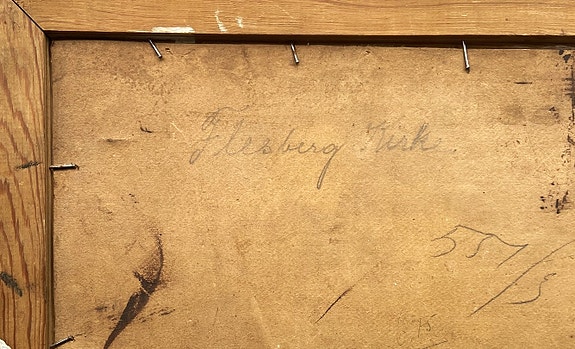 Flesberg Kirk
55